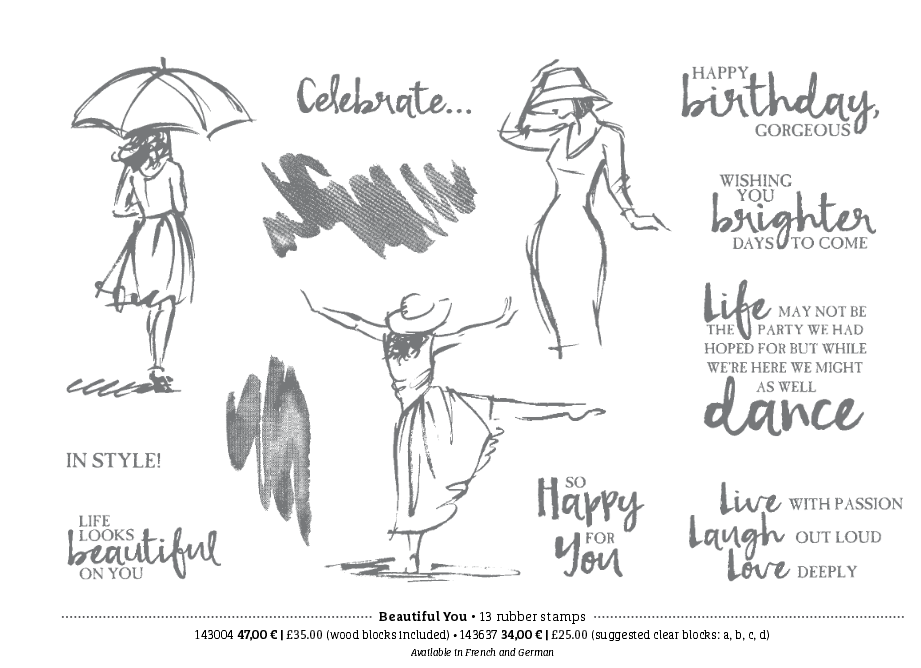 Celebrate...
HAPPY
birthday,
GORGEOUS
WISHING
YOU
brighter
DAYS TO COME
life MAY NOT BE
THE PARTY WE HAD
HOPED FOR BUT WHILE
WE'RE HERE WE MIGHT
AS WELL
dance
IN STYLE!
LIFE
LOOKS
beautiful
ON YOU
SO
Happy
FOR
You
Live WITH PASSION
Laugh OUT LOUD
Love DEEPLY
Beautiful You • 13 rubber stamps
143004 47,00 € | £35.00 (wood blocks included) • 143637 34,00 € | £25.00 (suggested clear blocks: a, b, c, d)
Available in French and German